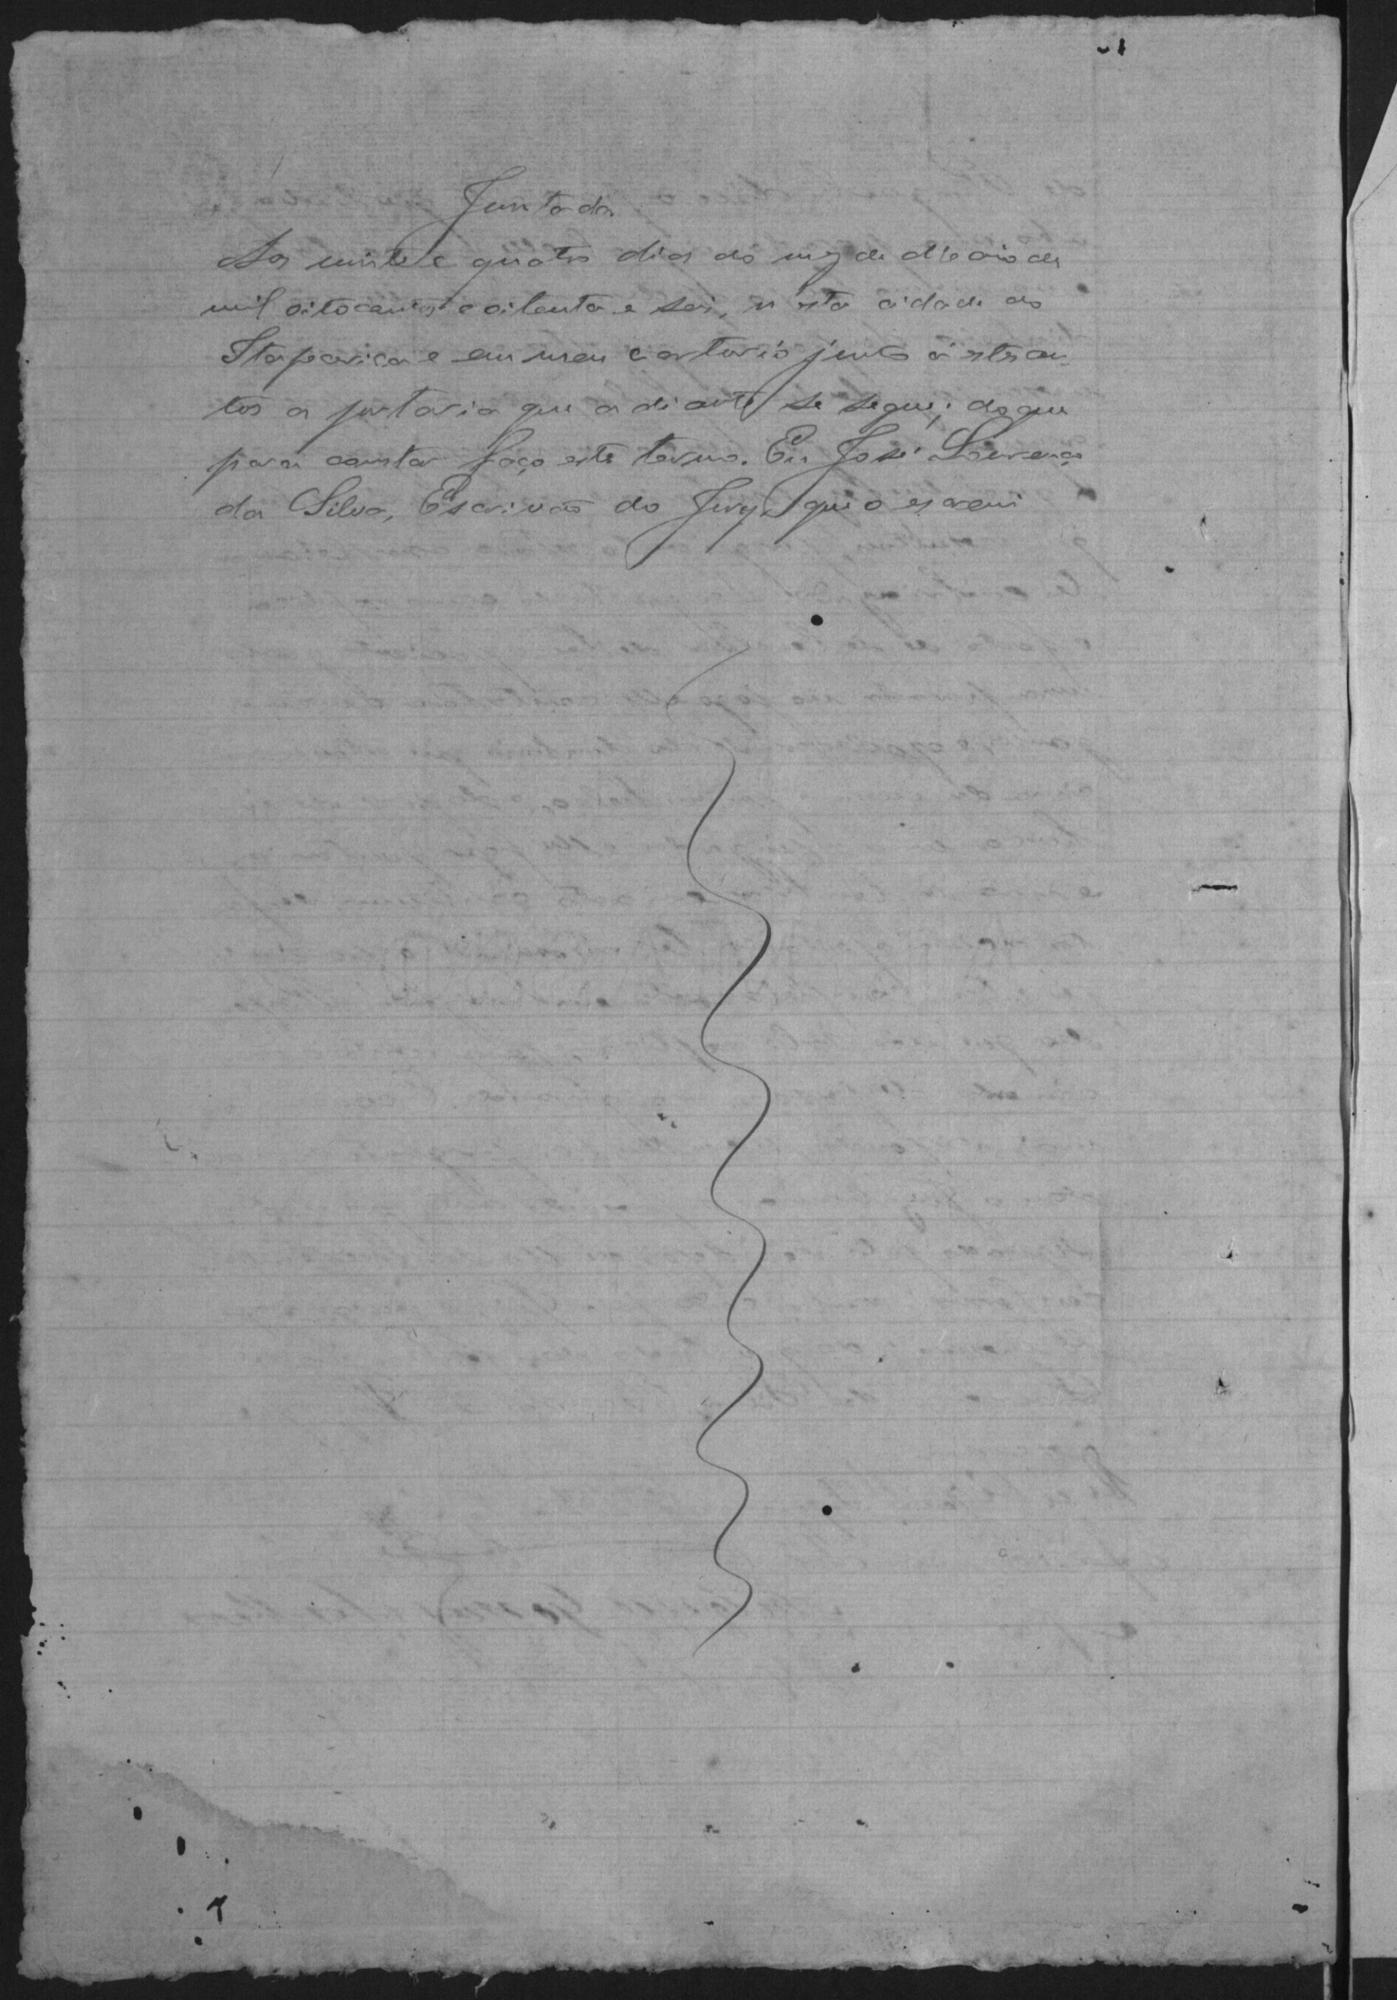 Juntada
Aos vinte e quatro dias do mez de
mil oitocentos e oitenta e seis, n'esta cidade de
Itaparica e em meu cartorio junto á estes au-
tos a portaria que a diante se segue; do que
para constar faço este termo. Eu José Lourenço
da Silva, Escrivão do Jury, que o escrevi